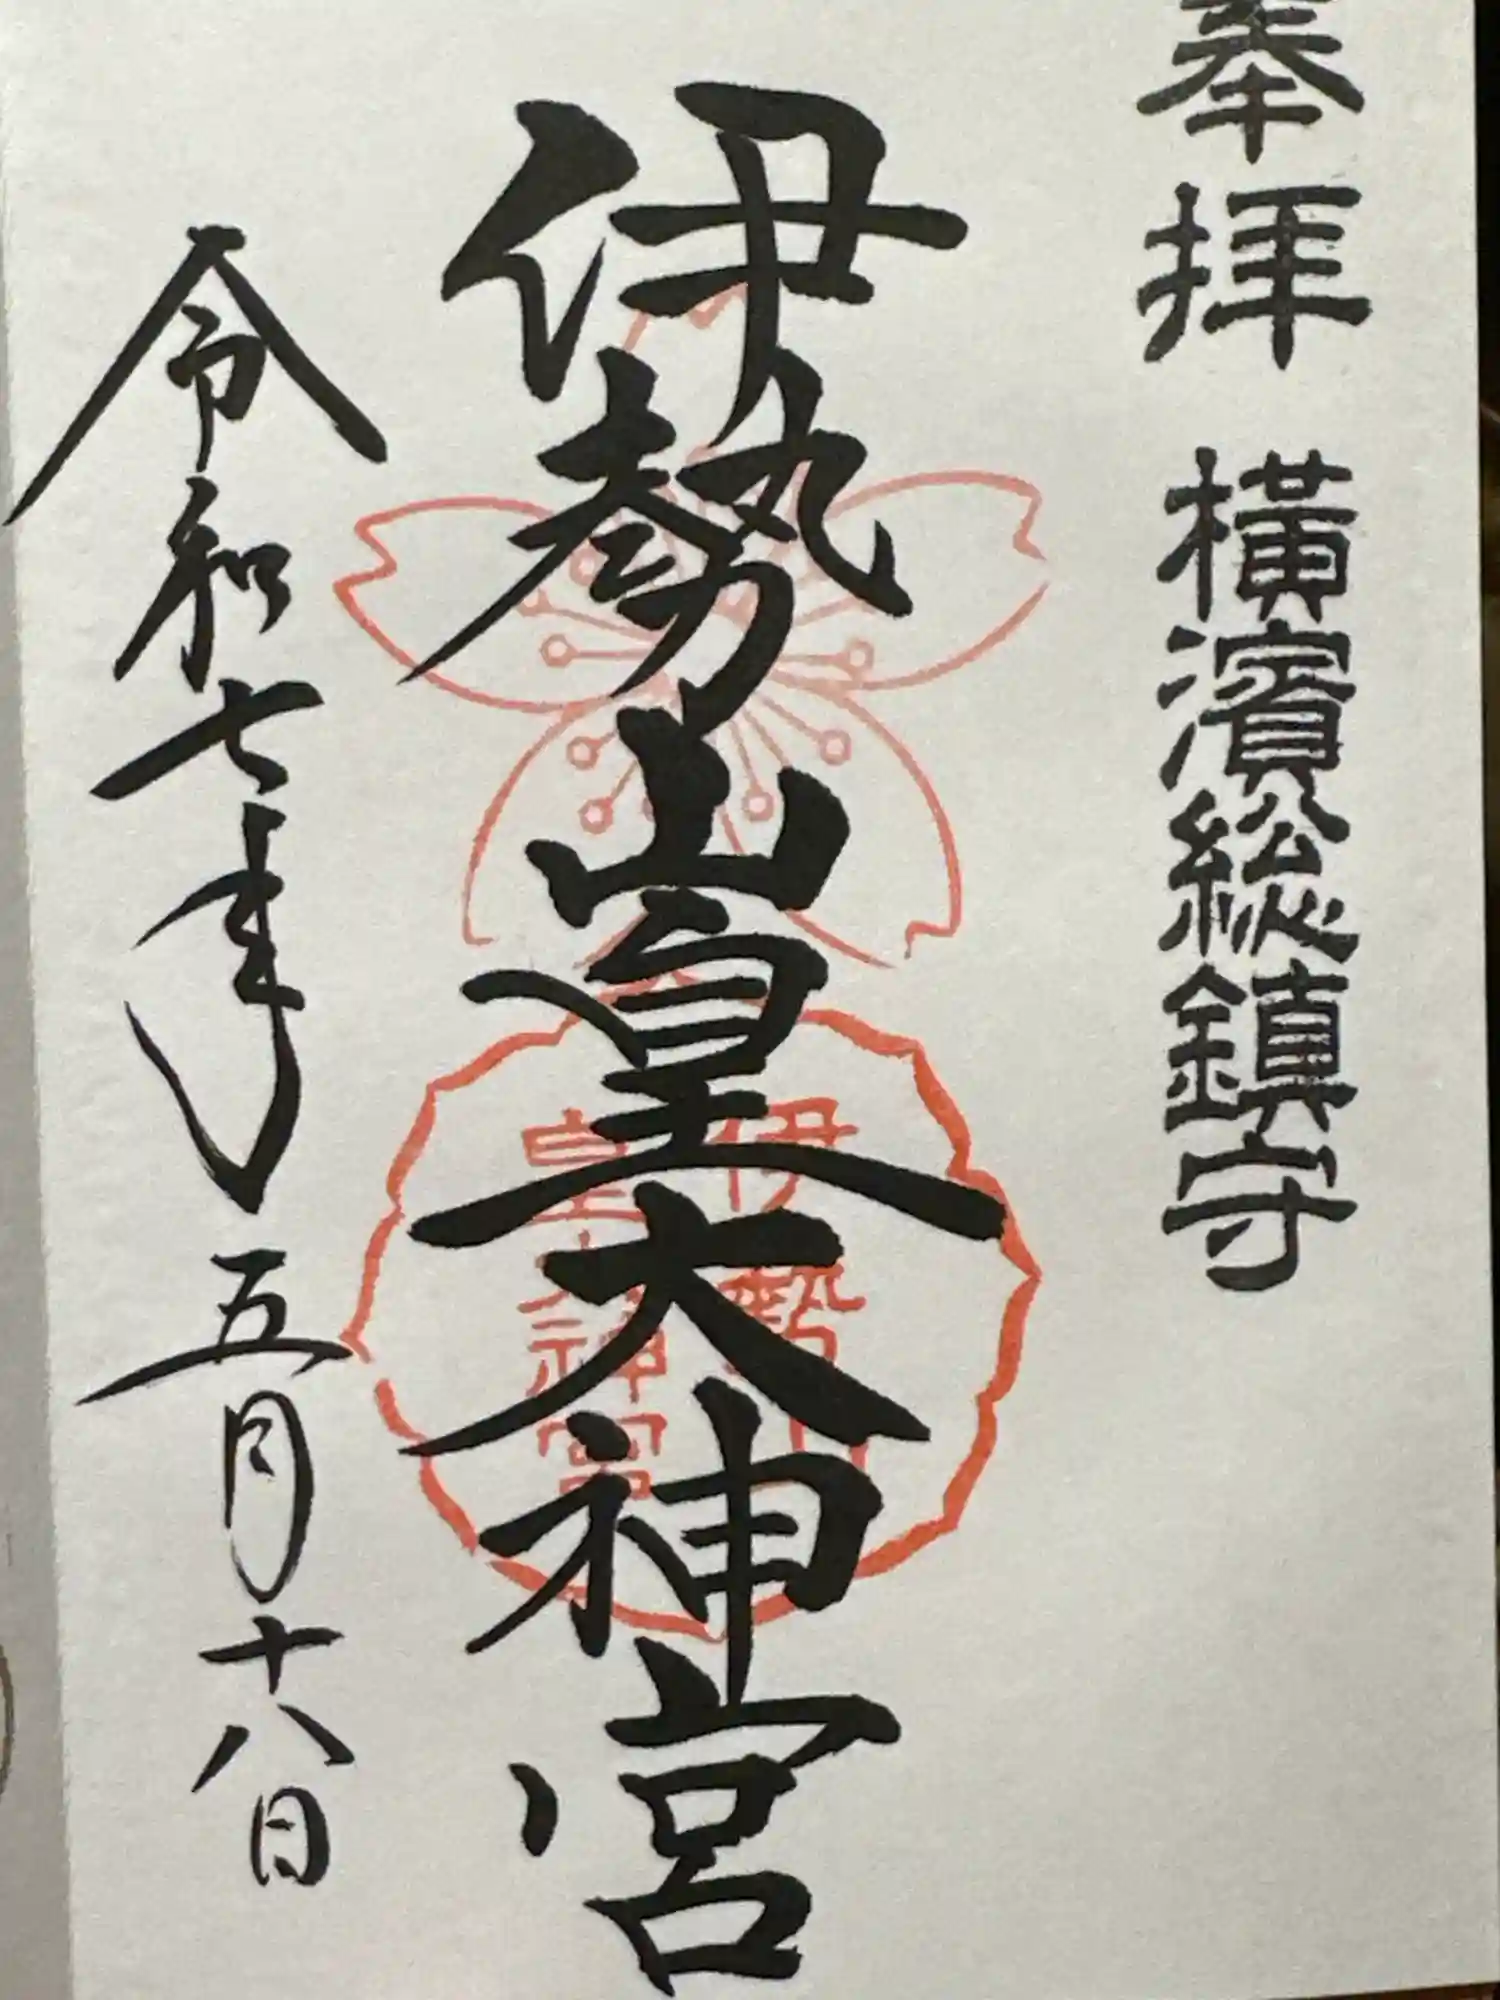 奉拝 横濱総鎮守
伊勢山皇大神宮
伊勢山
皇大神宮
令和七年五月十八日